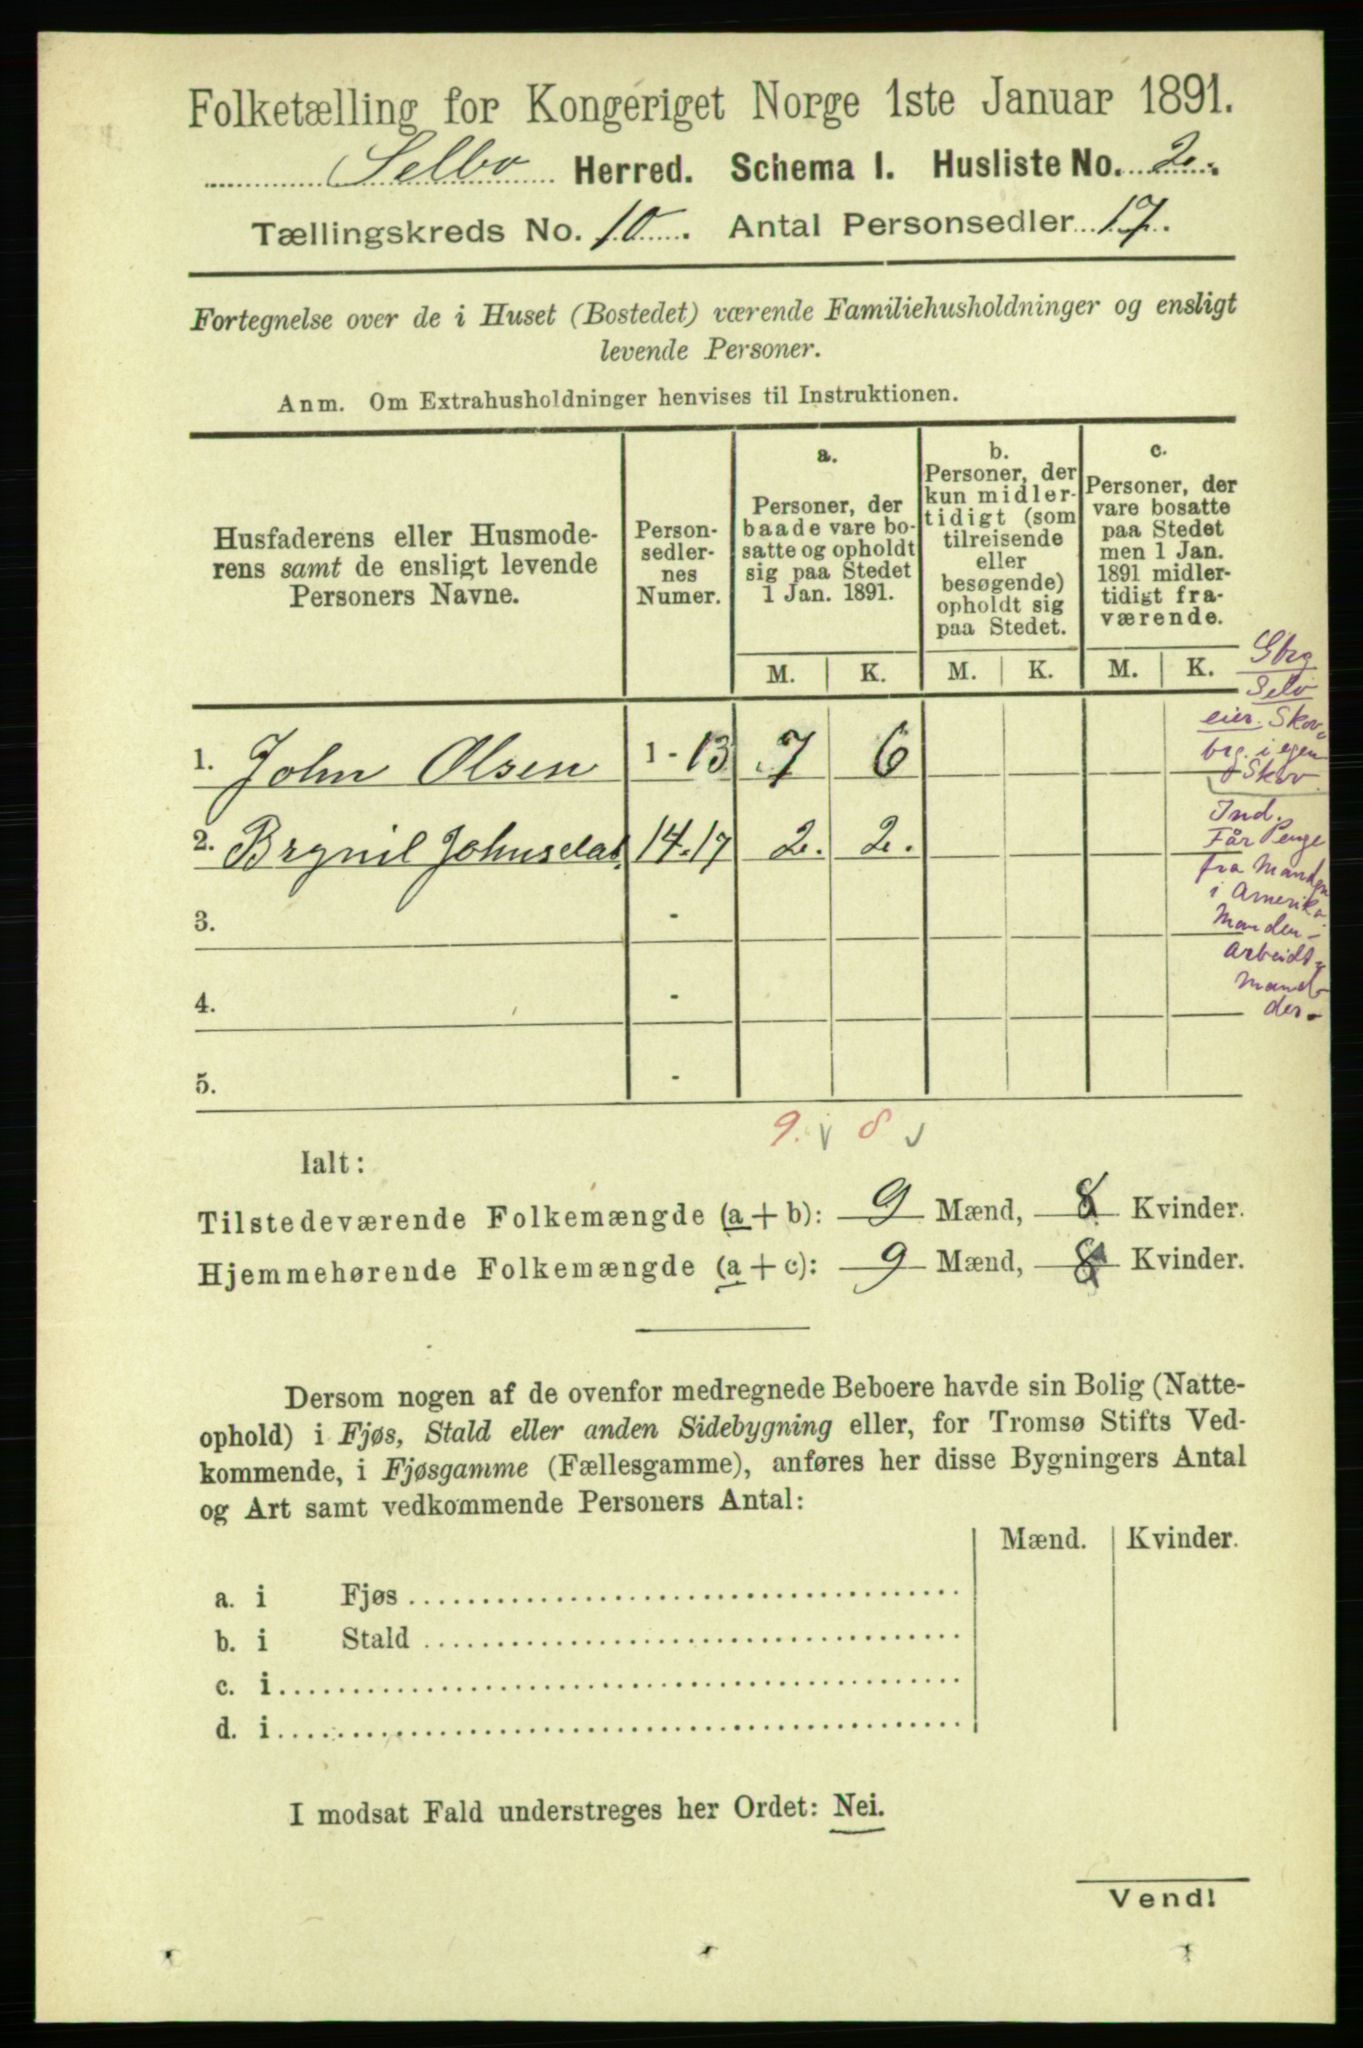 Folketælling for Kongeriget Norge 1ste Januar 1891.
Selbo Herred. Schema 1. Husliste No. 2.
Tællingskreds No. 10. Antal Personsedler 17.
Fortegnelse over de i Huset (Bostedet) værende Familiehusholdninger og ensligt
levende Personer.
Anm. Om Extrahusholdninger henvises til Instruktionen.
Husfaderens eller Husmode-
rens samt de ensligt levende
Personers Navne.
Person-
sedler-
nes
Numer.
a.
Personer, der
baade vare bo-
satte og opholdt
sig paa Stedet
1 Jan. 1891.
b.
Personer, der
kun midler-
tidigt (som
tilreisende
eller
besøgende)
opholdt sig
paa Stedet.
c.
Personer, der
vare bosatte
paa Stedet
men 1 Jan.
1891 midler-
tidigt fra-
værende.
M. K. M. K. M. K.
Gbrg
Selv
eier. Skov-
brg. i egen
Skov
1. John Olsen 1 - 13 7 6
Ind.
Får Penge
fra Manden
i Amerika
Manden -
Arbeidt-
mand
der.
2. Brynil Johnsdat. 14-17 2. 2.
3. -
4. -
5. -
9. 8
Ialt:
Tilstedeværende Folkemængde (a + b): 9 Mænd, 8 Kvinder.
Hjemmehørende Folkemængde (a + c): 9 Mænd, 8 Kvinder.
Dersom nogen af de ovenfor medregnede Beboere havde sin Bolig (Natte-
ophold) i Fjøs, Stald eller anden Sidebygning eller, for Tromsø Stifts Ved-
kommende, i Fjøsgamme (Fællesgamme), anføres her disse Bygningers Antal
og Art samt vedkommende Personers Antal:
Mænd. Kvinder.
a. i Fjøs
b. i Stald
c. i
d. i
I modsat Fald understreges her Ordet: Nei.
Vend!